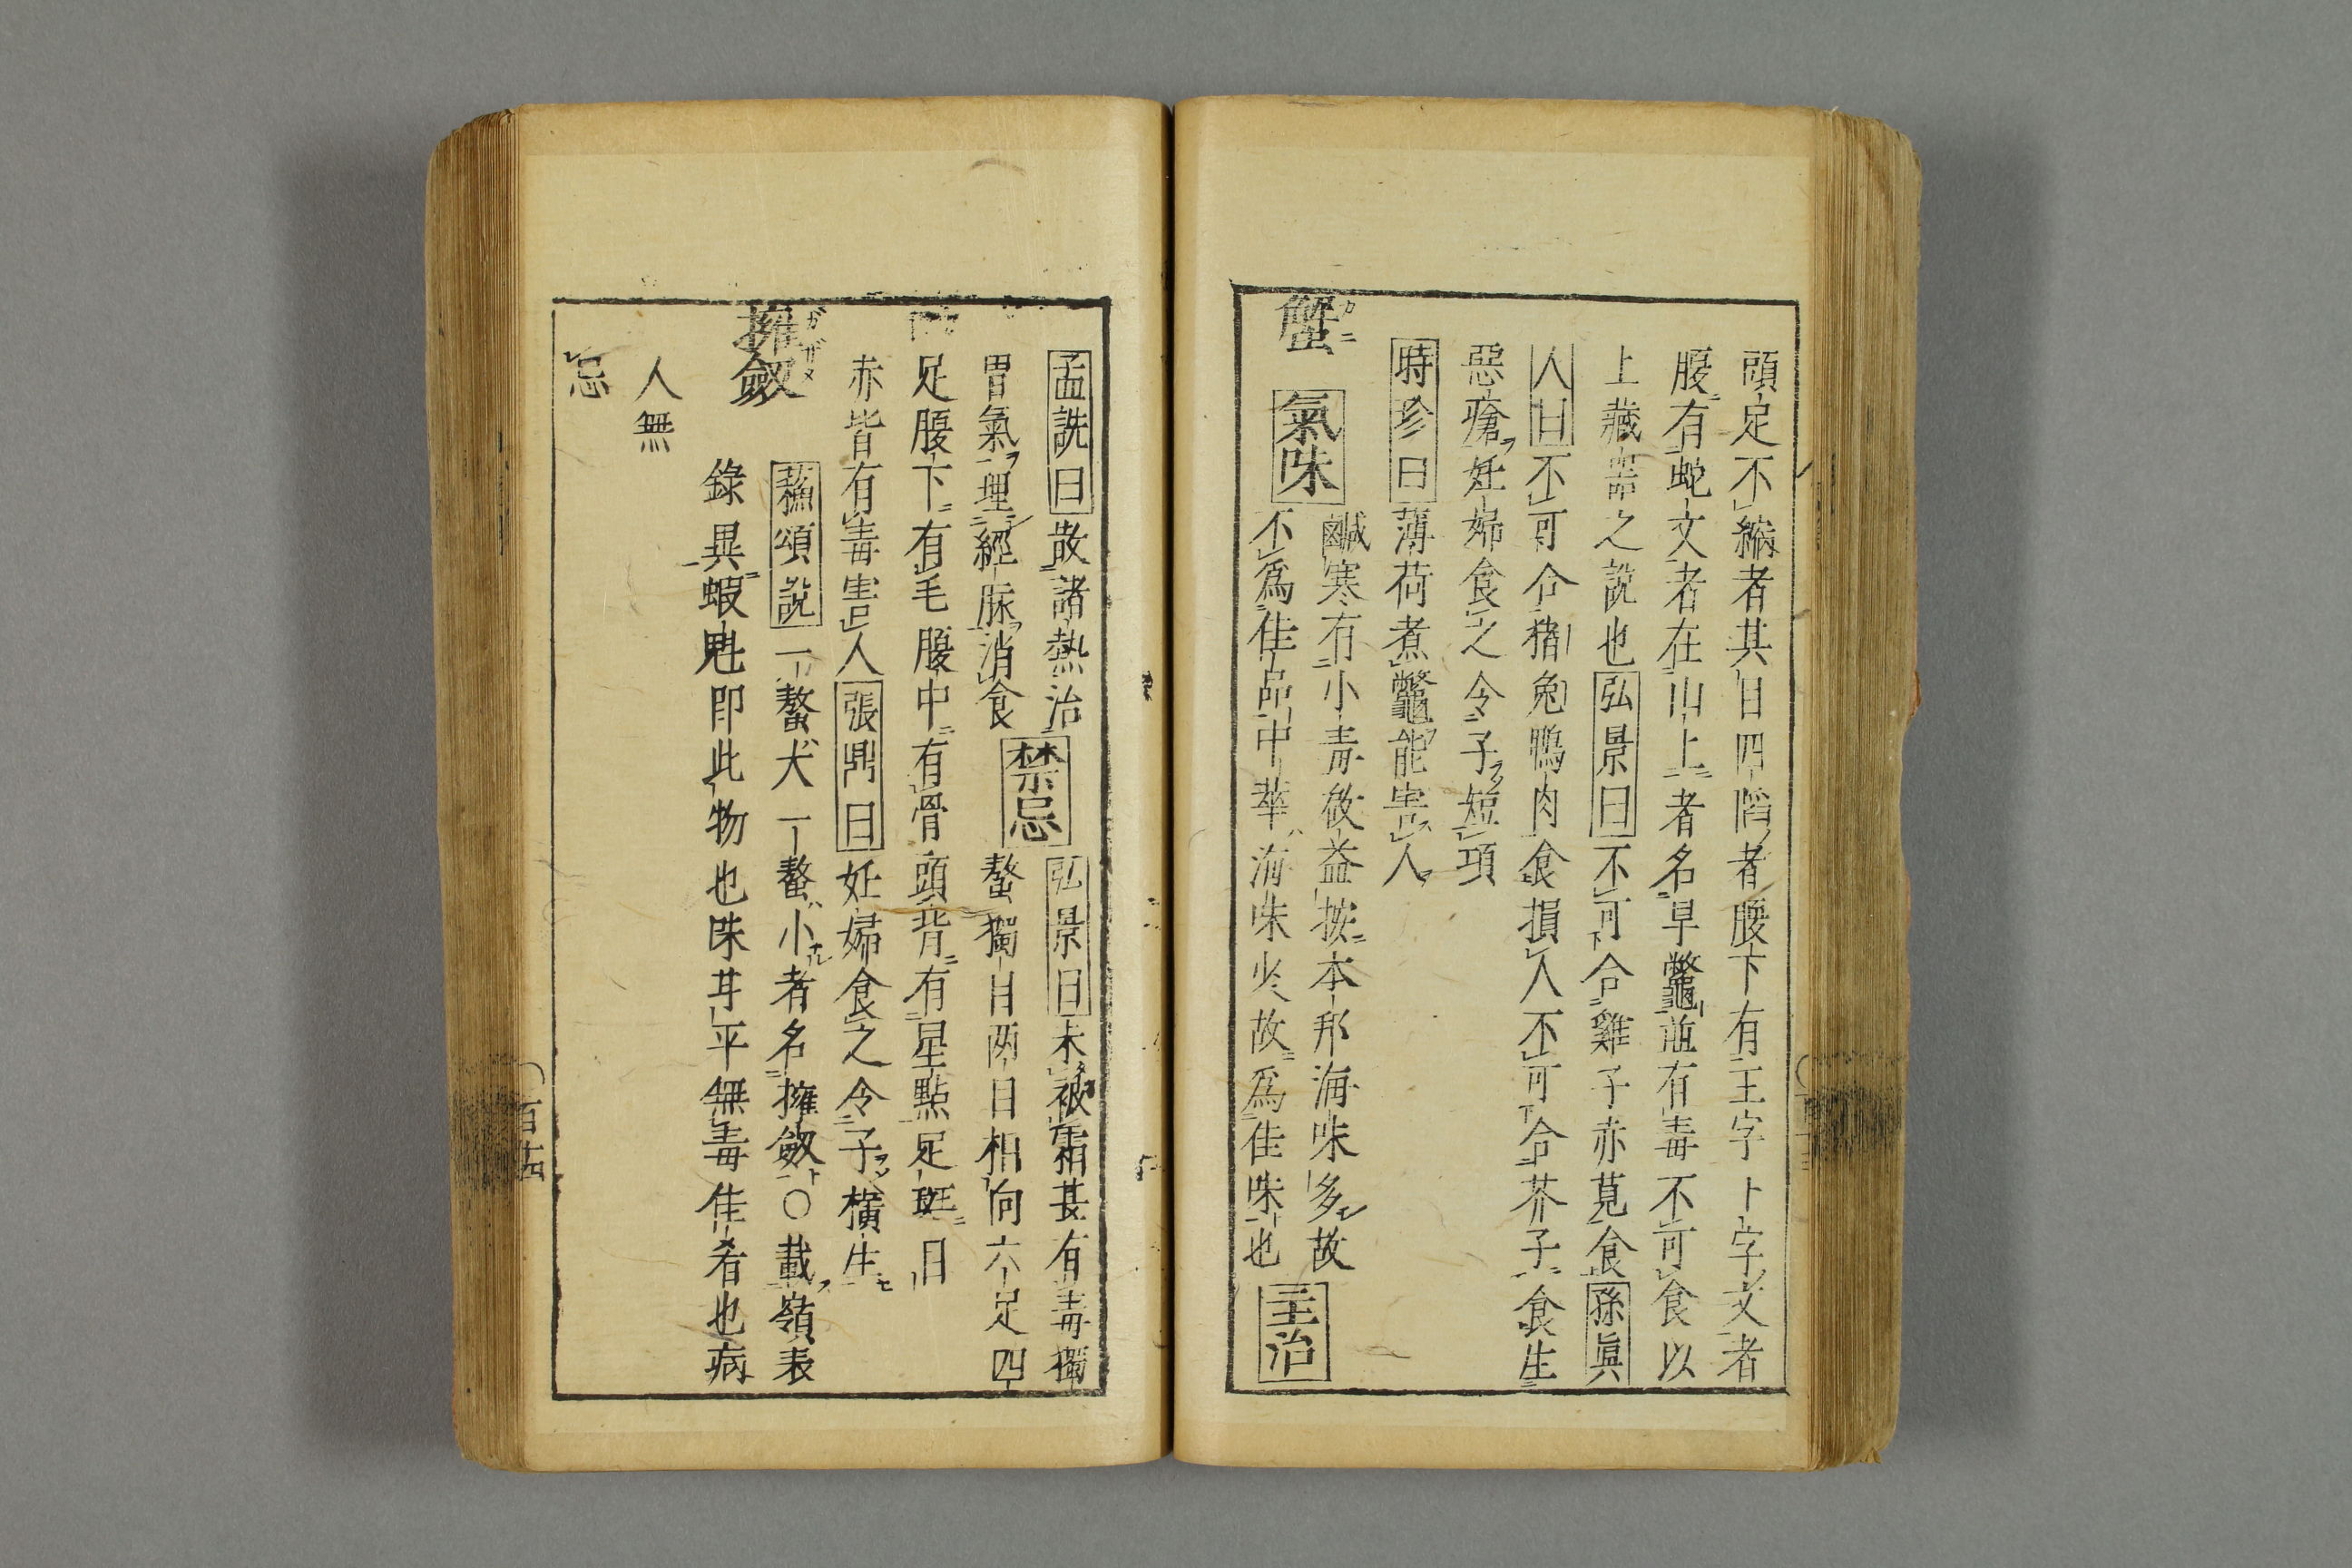 頭足不縮者其目四陷者腹下有王字卜字文者
腹有蛇文者在山上者名旱鼈並有毒不可食以
上藏器之說也弘景曰不可合雞子赤莧食孫眞
人曰不可合猪兔鴨肉食損人不可合芥子食生
惡瘡妊婦食之令子短項
時珍曰薄荷煮鼈能害人
蟹 カニ
氣味 鹹寒有小毒 按本邦海味多故
不爲佳品中華海味少故爲佳味也 主治
孟詵曰散諸熱治
胃氣理經脉消食 禁忌 弘景曰未被霜甚有毒獨
螯獨目兩目相向六足四
足腹下有毛腹中有骨頭背有星點足斑目
赤皆有毒害人張鼎曰妊婦食之令子橫生
擁劔 ガザメ
蘓頌說一螯大一螯小者名擁劔○載嶺表
錄異蝦魁即此物也味甘平無毒佳肴也病
人無
忌
百十四